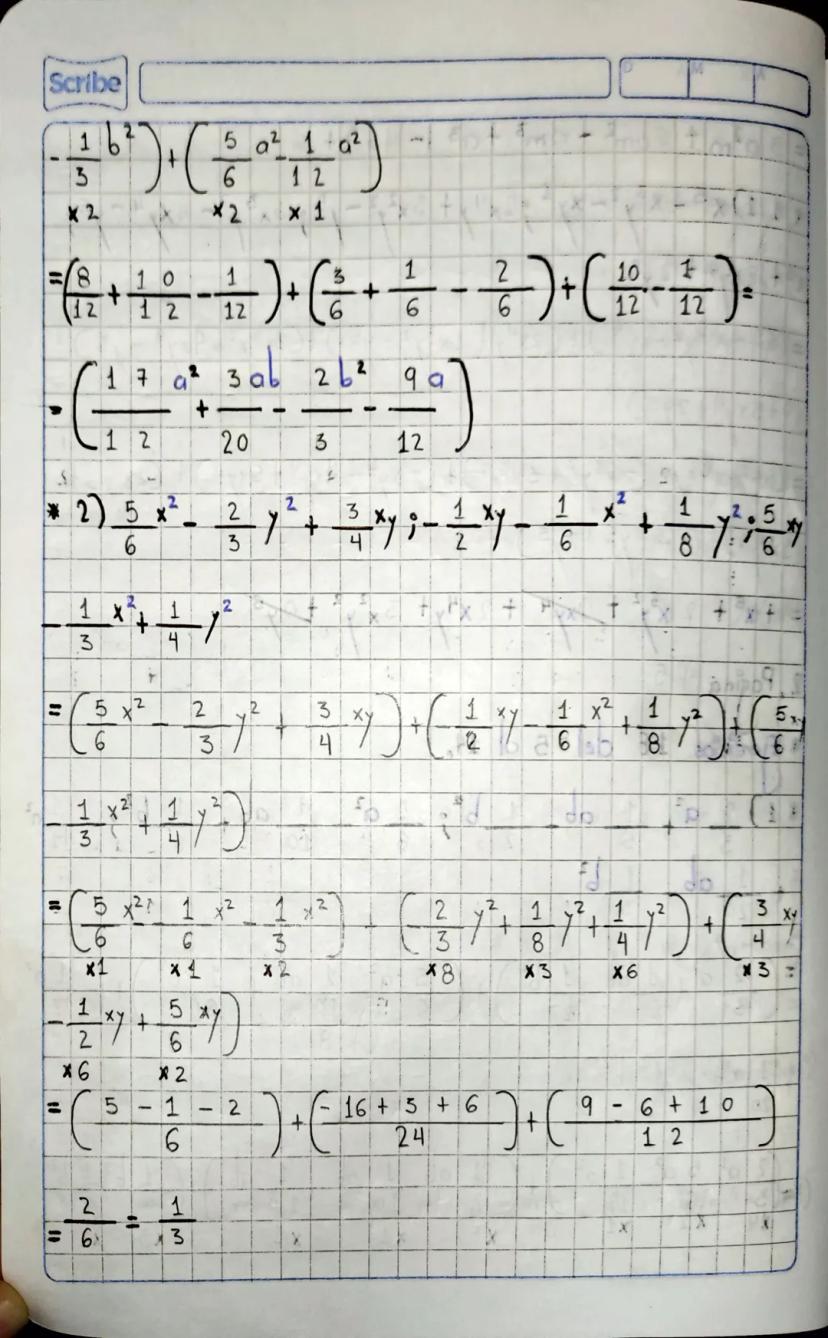 Scribe
- 1/3 b² ) + ( 5/6 a² - 1/12 a² )
x2 x2 x1
= ( 8/12 + 10/12 - 1/12 ) + ( 3/6 + 1/6 - 2/6 ) + ( 10/12 - 1/12 ) =
= ( 17/12 a² + 3/20 ab - 2/3 b² - 9/12 a )
* 2) 5/6 x² - 2/3 y² + 3/4 xy ; - 1/2 xy - 1/6 x² + 1/8 y² ; 5/6 xy
- 1/3 x² + 1/4 y²
= ( 5/6 x² - 2/3 y² + 3/4 xy ) + ( - 1/2 xy - 1/6 x² + 1/8 y² ) + ( 5/6 xy
- 1/3 x² + 1/4 y² )
= ( 5/6 x² - 1/6 x² - 1/3 x² ) + ( - 2/3 y² + 1/8 y² + 1/4 y² ) + ( 3/4 xy
x1 x1 x2 x8 x3 x6 x3 =
- 1/2 xy + 5/6 xy )
x6 x2
= ( 5 - 1 - 2 / 6 ) + ( - 16 + 3 + 6 / 24 ) + ( 9 - 6 + 10 / 12 )
= 2/6 = 1/3